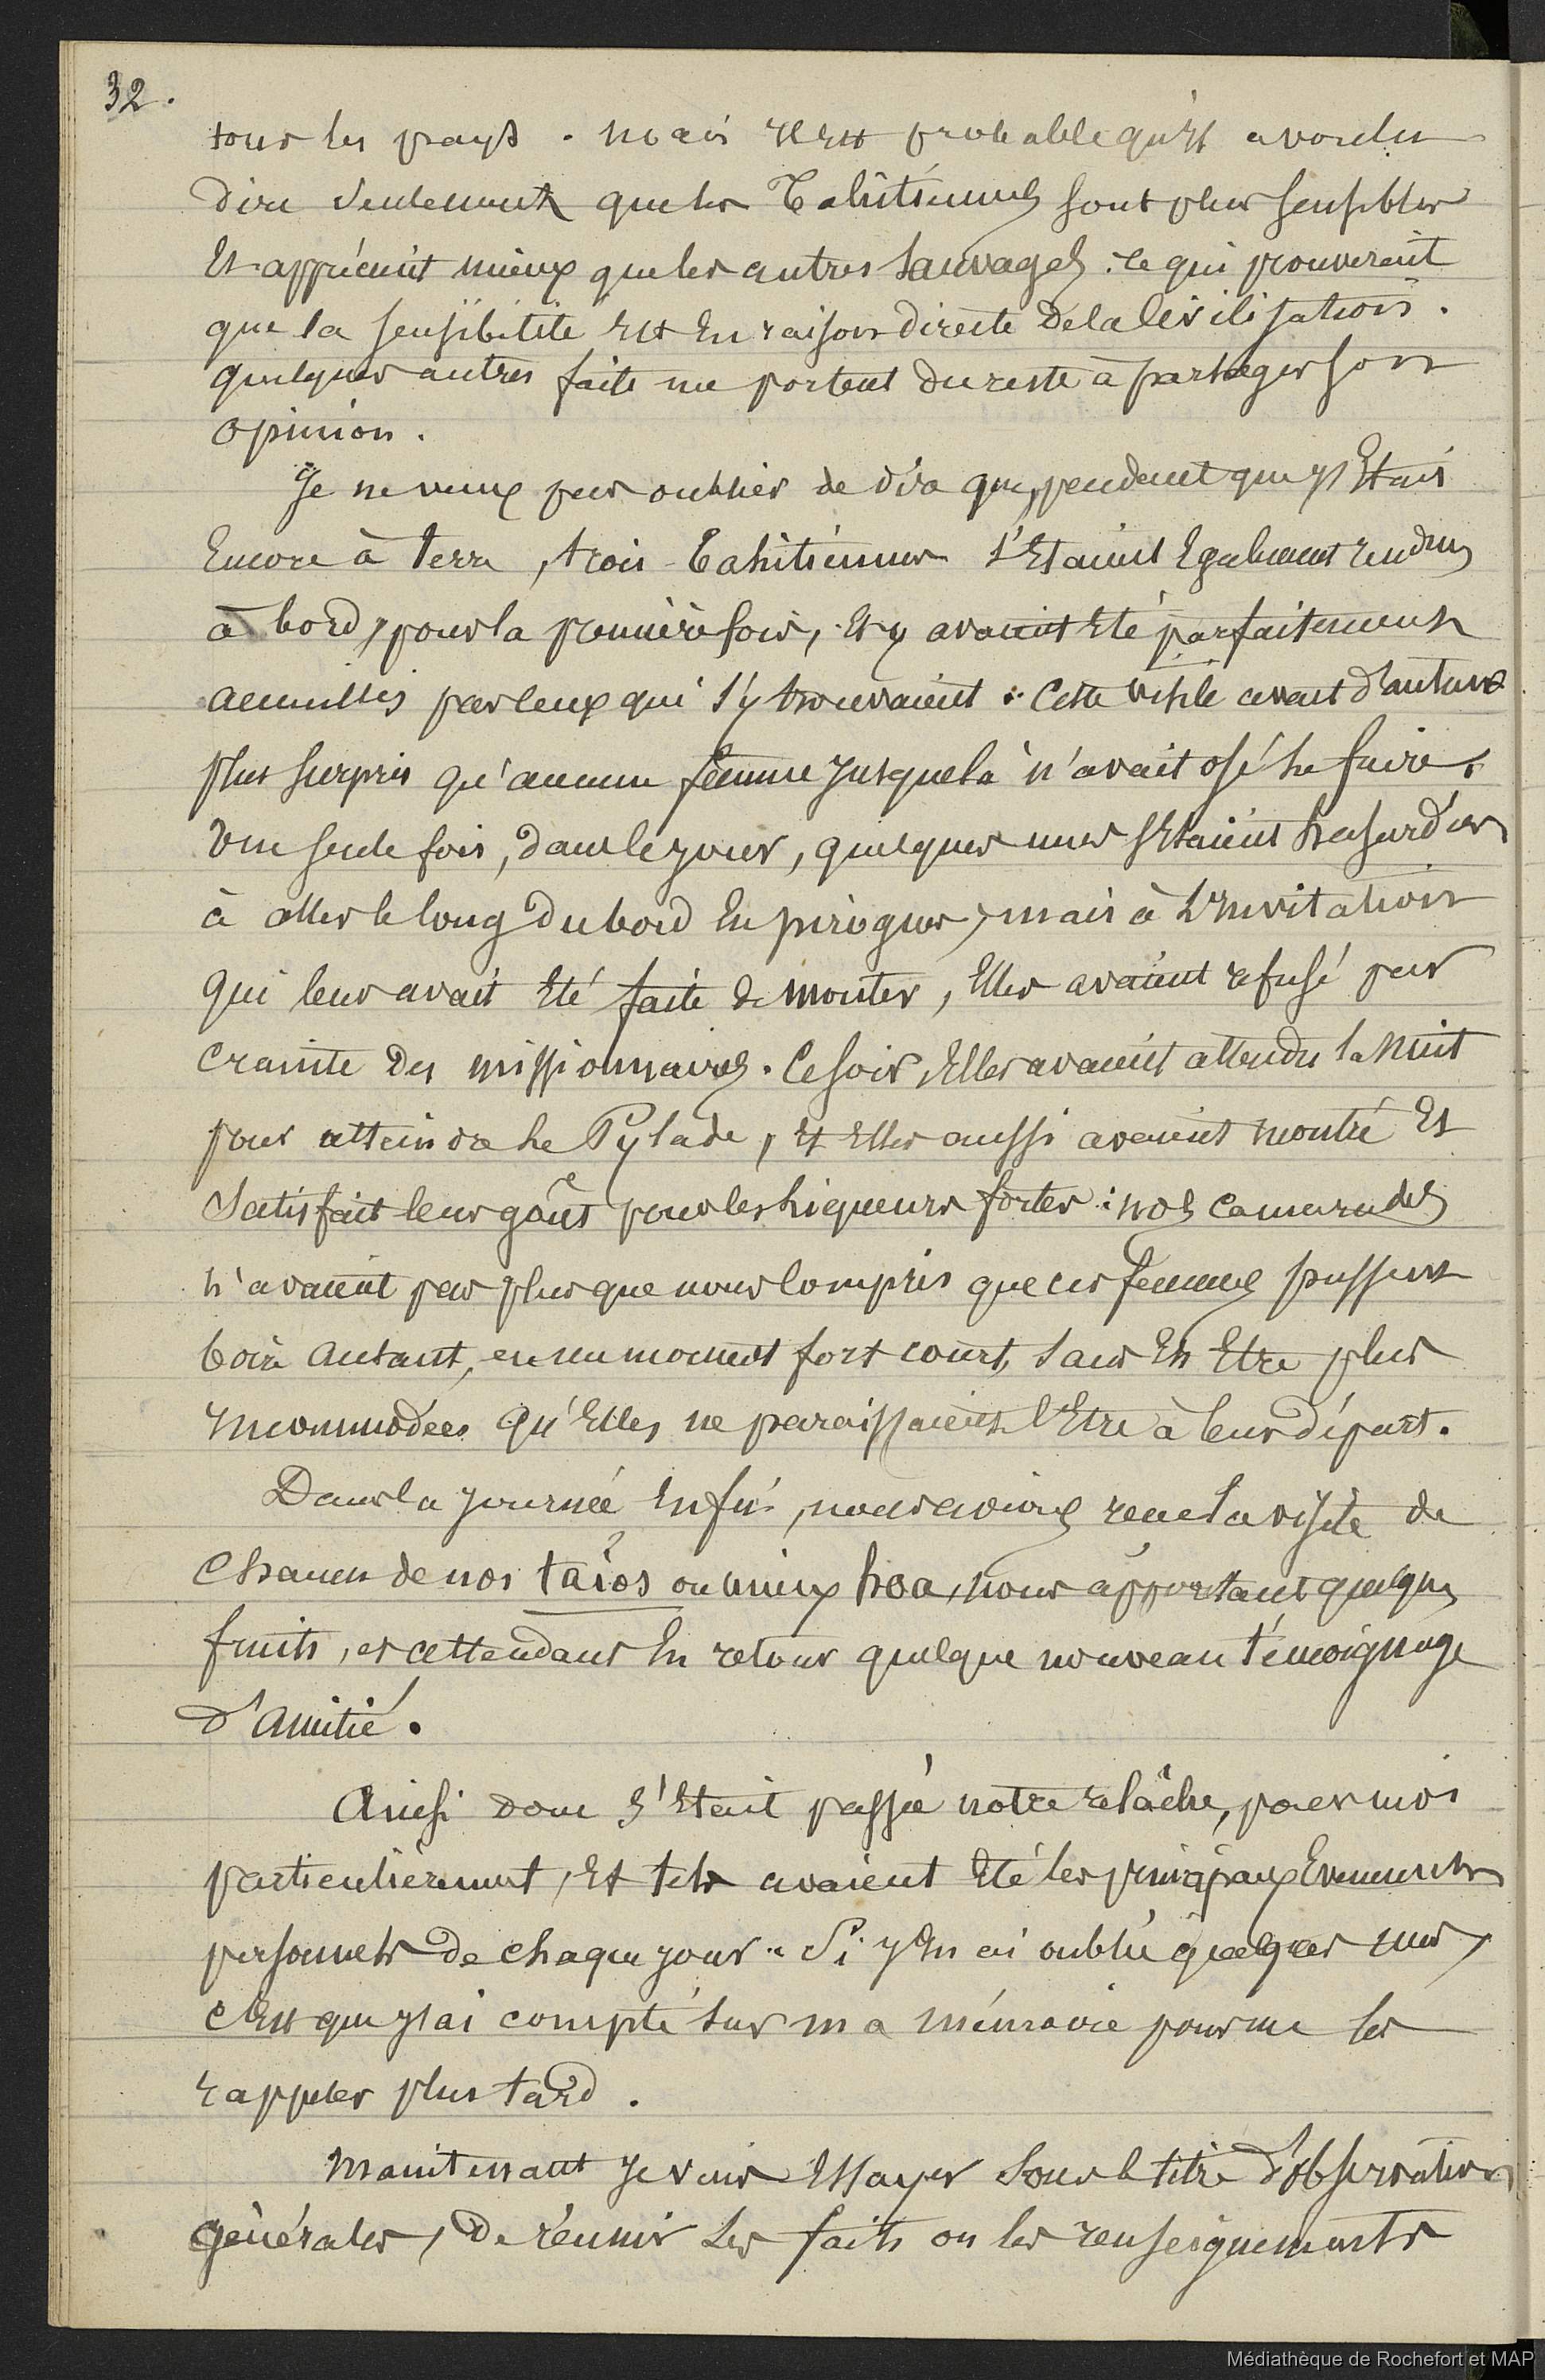 32.
tous les pays. mais il est probable qu'il a voulu
dire seulement que les Tahitiennes sont plus sensibles
et apprécient mieux que les autres sauvages : ce qui prouverait
que la sensibilité est en raison directe de la civilisation.
quelques autres faits me portent du reste à partager son
opinion.
Je ne veux pas oublier de dire que, pendant que j'étais
encore à terre, trois Tahitiennes s'étaient également rendues
à bord, pour la première fois, et y avaient été parfaitement
accueillies par ceux qui s'y trouvaient : Cette visite avait d'autant
plus surpris qu'aucune femme jusque là n'avait osé le faire.
Une seule fois, dans le jour, quelques unes s'étaient hasardées
à aller le long du bord en pirogues, mais à l'invitation
qui leur avait été faite de monter, elles avaient refusé par
crainte des missionnaires. Ce soir, elles avaient attendu la nuit
pour atteindre le Pylade, et elles aussi avaient montré et
satisfait leur goût pour les liqueurs fortes : nos camarades
n'avaient pas plus que nous compris que ces femmes pussent
boire autant, en un moment fort court, sans en être plus
incommodées qu'elles ne paraissaient l'être à leur départ.
Dans la journée enfin, nous avions reçu la visite de
chacun de nos taïos ou mieux hoa, nous apportant quelques
fruits, et attendant en retour quelque nouveau témoignage
d'amitié.
Ainsi donc s'était passée notre relâche, pour moi
particulièrement, et tels avaient été les principaux évenements
personnels de chaque jour. Si j'en ai oublié quelques uns,
c'est que j'ai compté sur ma mémoire pour me les
rappeler plus tard.
Maintenant je vais essayer sous le titre d'observations
générales, de réunir les faits ou les renseignements
Médiathèque de Rochefort et MAP